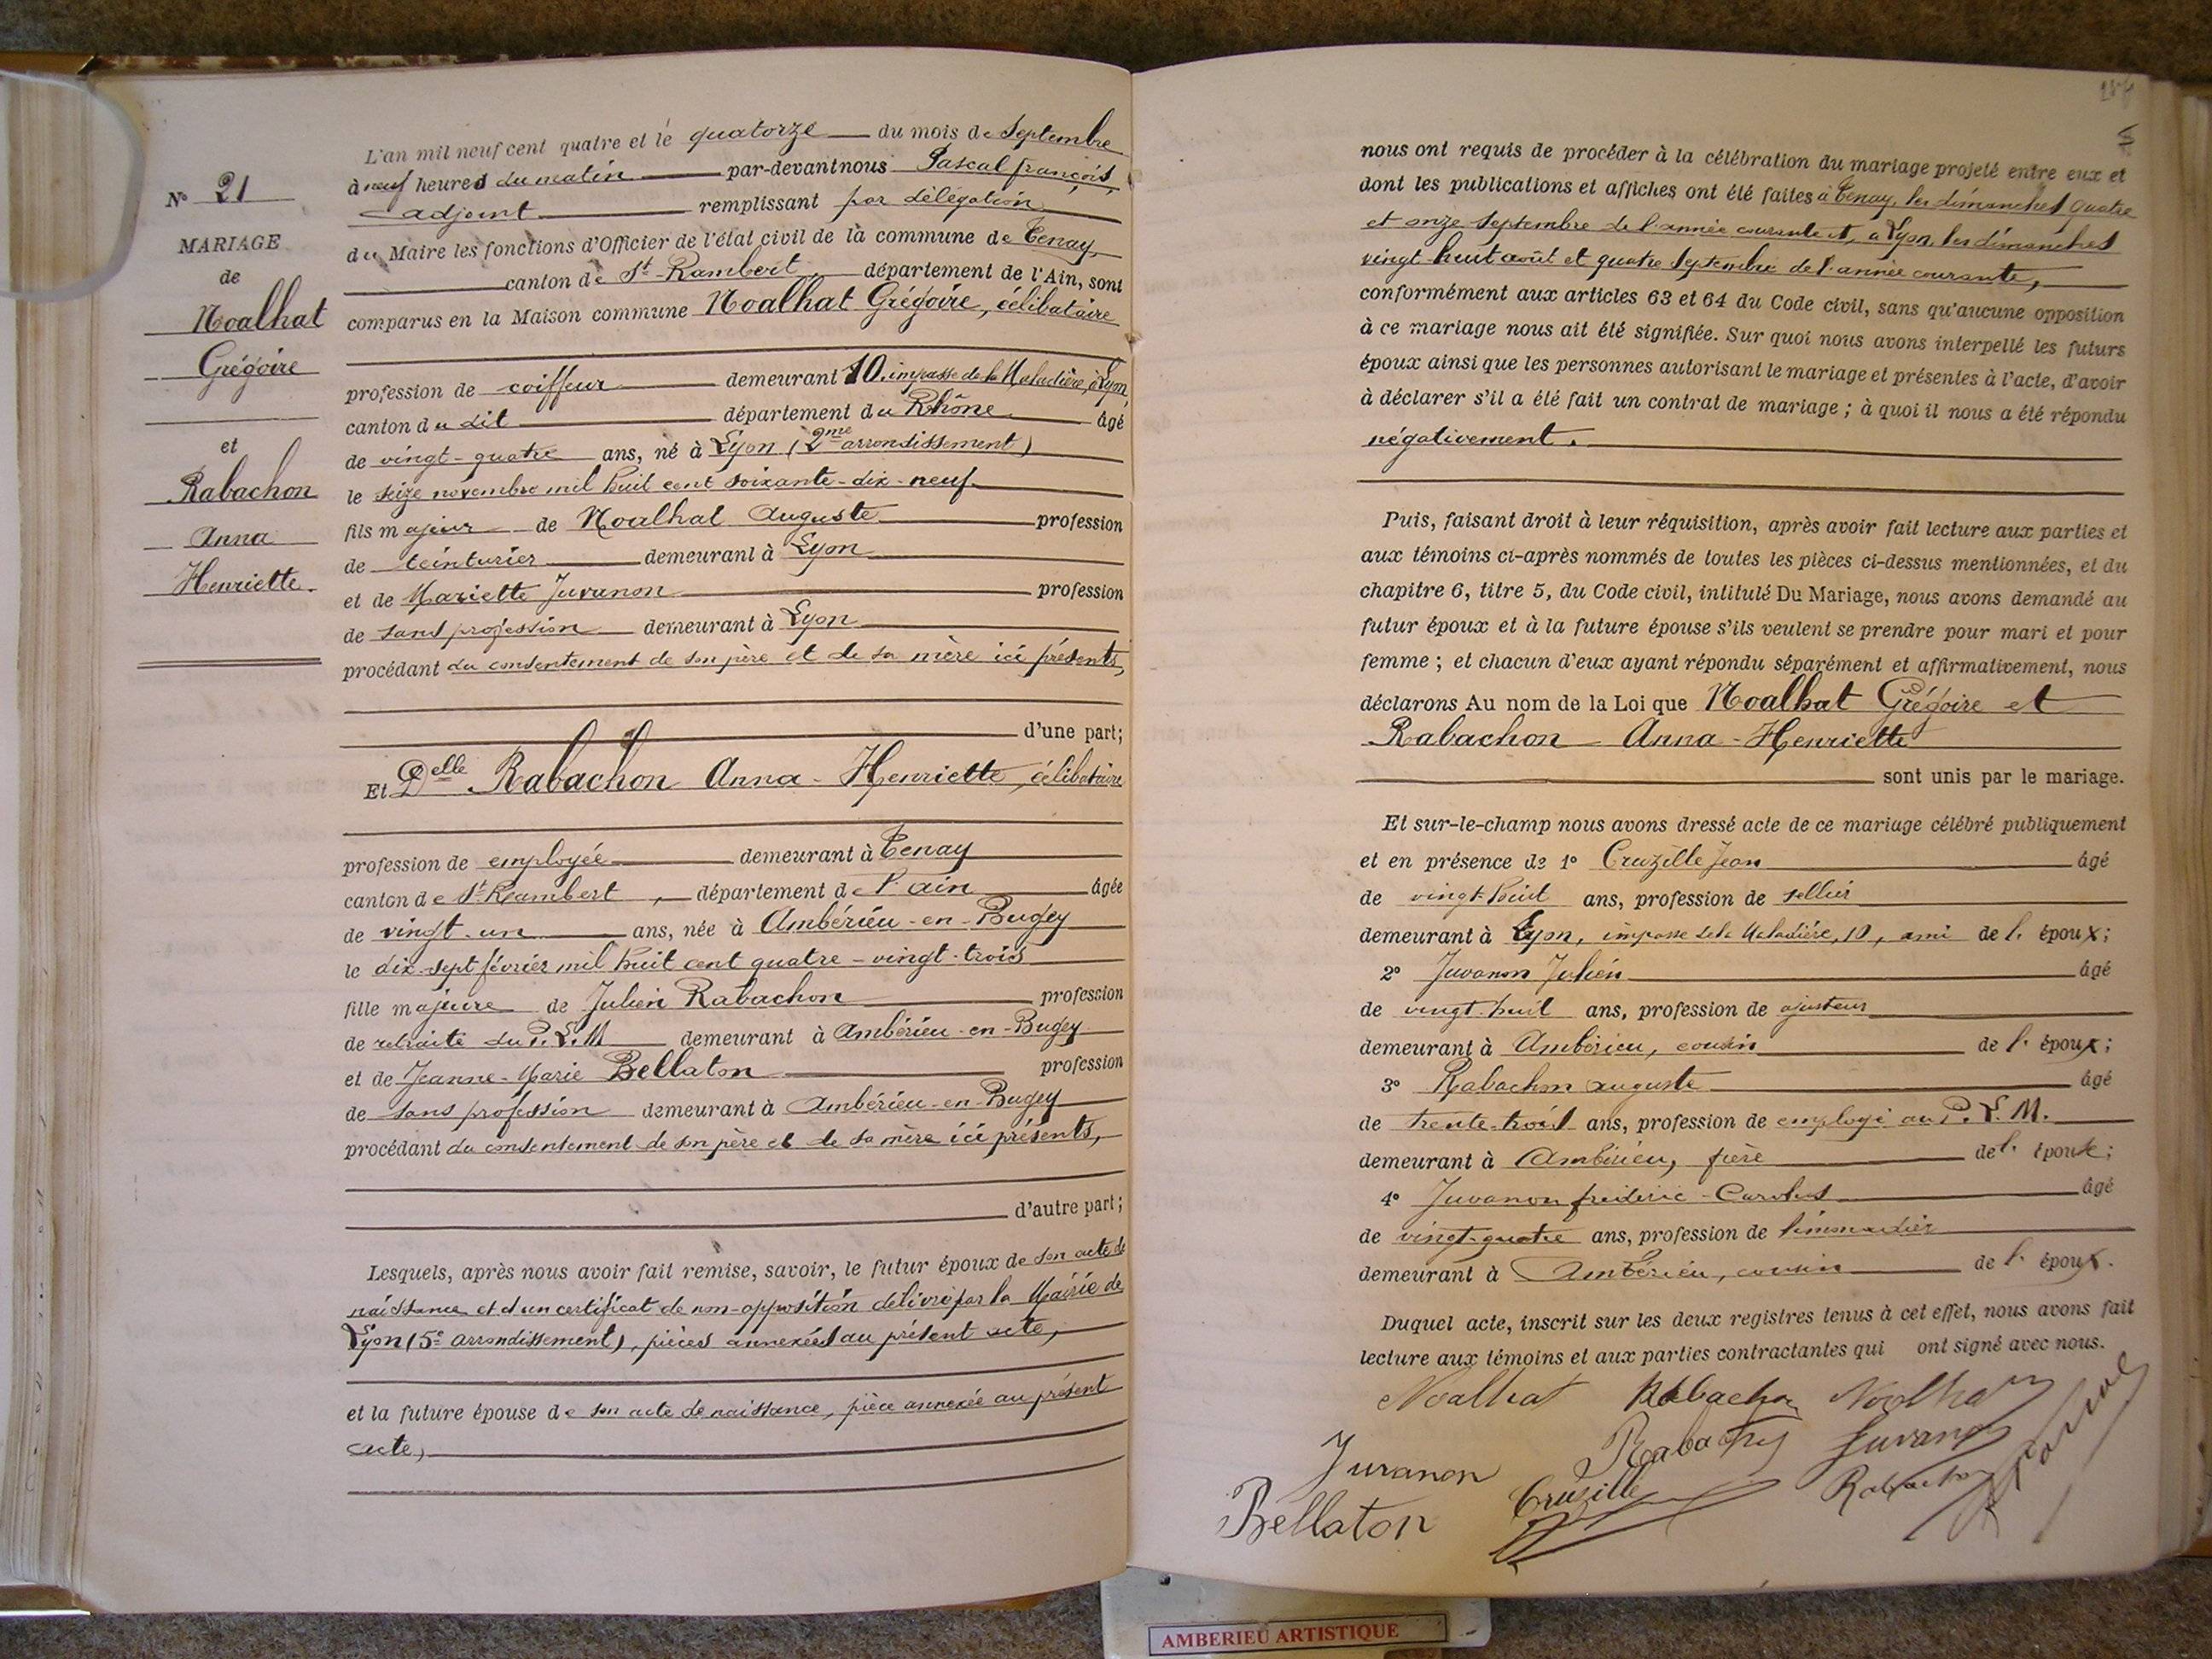 N° 21
MARIAGE
de
Noalhat
Grégoire
et
Rabachon
Anna
Henriette.
L'an mil neuf cent quatre et le quatorze du mois de Septembre
à neuf heures du matin par-devant nous Pascal françois,
adjoint remplissant par délégation
du Maire les fonctions d'Officier de l'état civil de la commune de Tenay,
canton de St-Rambert, département de l'Ain, sont
comparus en la Maison commune Noalhat Grégoire, célibataire
profession de coiffeur demeurant 10, impasse de la Maladière, à Lyon,
canton du dit département du Rhône âgé
de vingt-quatre ans, né à Lyon (2me arrondissement)
le seize novembre mil huit cent soixante-dix-neuf
fils majeur de Noalhat Auguste profession
de teinturier demeurant à Lyon
et de Mariette Juvanon profession
de sans profession demeurant à Lyon
procédant du consentement de son père et de sa mère ici présents,
d'une part;
Et Delle Rabachon Anna-Henriette, célibataire
profession de employée demeurant à Tenay
canton de St-Rambert, département de l'ain âgée
de vingt-un ans, née à Ambérieu-en-Bugey
le dix-sept février mil huit cent quatre-vingt-trois
fille majeure de Julien Rabachon profession
de retraité du P.L.M demeurant à Ambérieu-en-Bugey
et de Jeanne-Marie Bellaton profession
de sans profession demeurant à Ambérieu-en-Bugey
procédant du consentement de son père et de sa mère ici présents,
d'autre part;
Lesquels, après nous avoir fait remise, savoir, le futur époux de son acte de
naissance et d'un certificat de non-opposition délivré par la Mairie de
Lyon (5e arrondissement), pièces annexées au présent acte,
et la future épouse de son acte de naissance, pièce annexée au présent
acte,
nous ont requis de procéder à la célébration du mariage projeté entre eux et
dont les publications et affiches ont été faites à Tenay, les dimanches quatre
et onze septembre de l'année courante et, à Lyon, les dimanches
vingt-huit août et quatre Septembre de l'année courante,
conformément aux articles 63 et 64 du Code civil, sans qu'aucune opposition
à ce mariage nous ait été signifiée. Sur quoi nous avons interpellé les futurs
époux ainsi que les personnes autorisant le mariage et présentes à l'acte, d'avoir
à déclarer s'il a été fait un contrat de mariage ; à quoi il nous a été répondu
négativement.
Puis, faisant droit à leur réquisition, après avoir fait lecture aux parties et
aux témoins ci-après nommés de toutes les pièces ci-dessus mentionnées, et du
chapitre 6, titre 5, du Code civil, intitulé Du Mariage, nous avons demandé au
futur époux et à la future épouse s'ils veulent se prendre pour mari et pour
femme ; et chacun d'eux ayant répondu séparément et affirmativement, nous
déclarons Au nom de la Loi que Noalhat Grégoire et
Rabachon Anna-Henriette
sont unis par le mariage.
Et sur-le-champ nous avons dressé acte de ce mariage célébré publiquement
et en présence de 1° Cruzille Jean âgé
de vingt-huit ans, profession de sellier
demeurant à Lyon, impasse de la Maladière, 10, ami de l' époux;
2° Juvanon Julien âgé
de vingt-huit ans, profession de ajusteur
demeurant à Ambérieu, cousin de l' époux;
3° Rabachon auguste âgé
de trente-trois ans, profession de employé au P.L.M.
demeurant à Ambérieu, frère de l' épouse;
4° Juvanon frédéric-Carolus âgé
de vingt-quatre ans, profession de limonadier
demeurant à Ambérieu, cousin de l' époux.
Duquel acte, inscrit sur les deux registres tenus à cet effet, nous avons fait
lecture aux témoins et aux parties contractantes qui ont signé avec nous.
Noalhat Rabachon Noalhat
Juvanon Rabachon Juvanon Pascal
Bellaton Cruzille Rabachon
AMBERIEU ARTISTIQUE